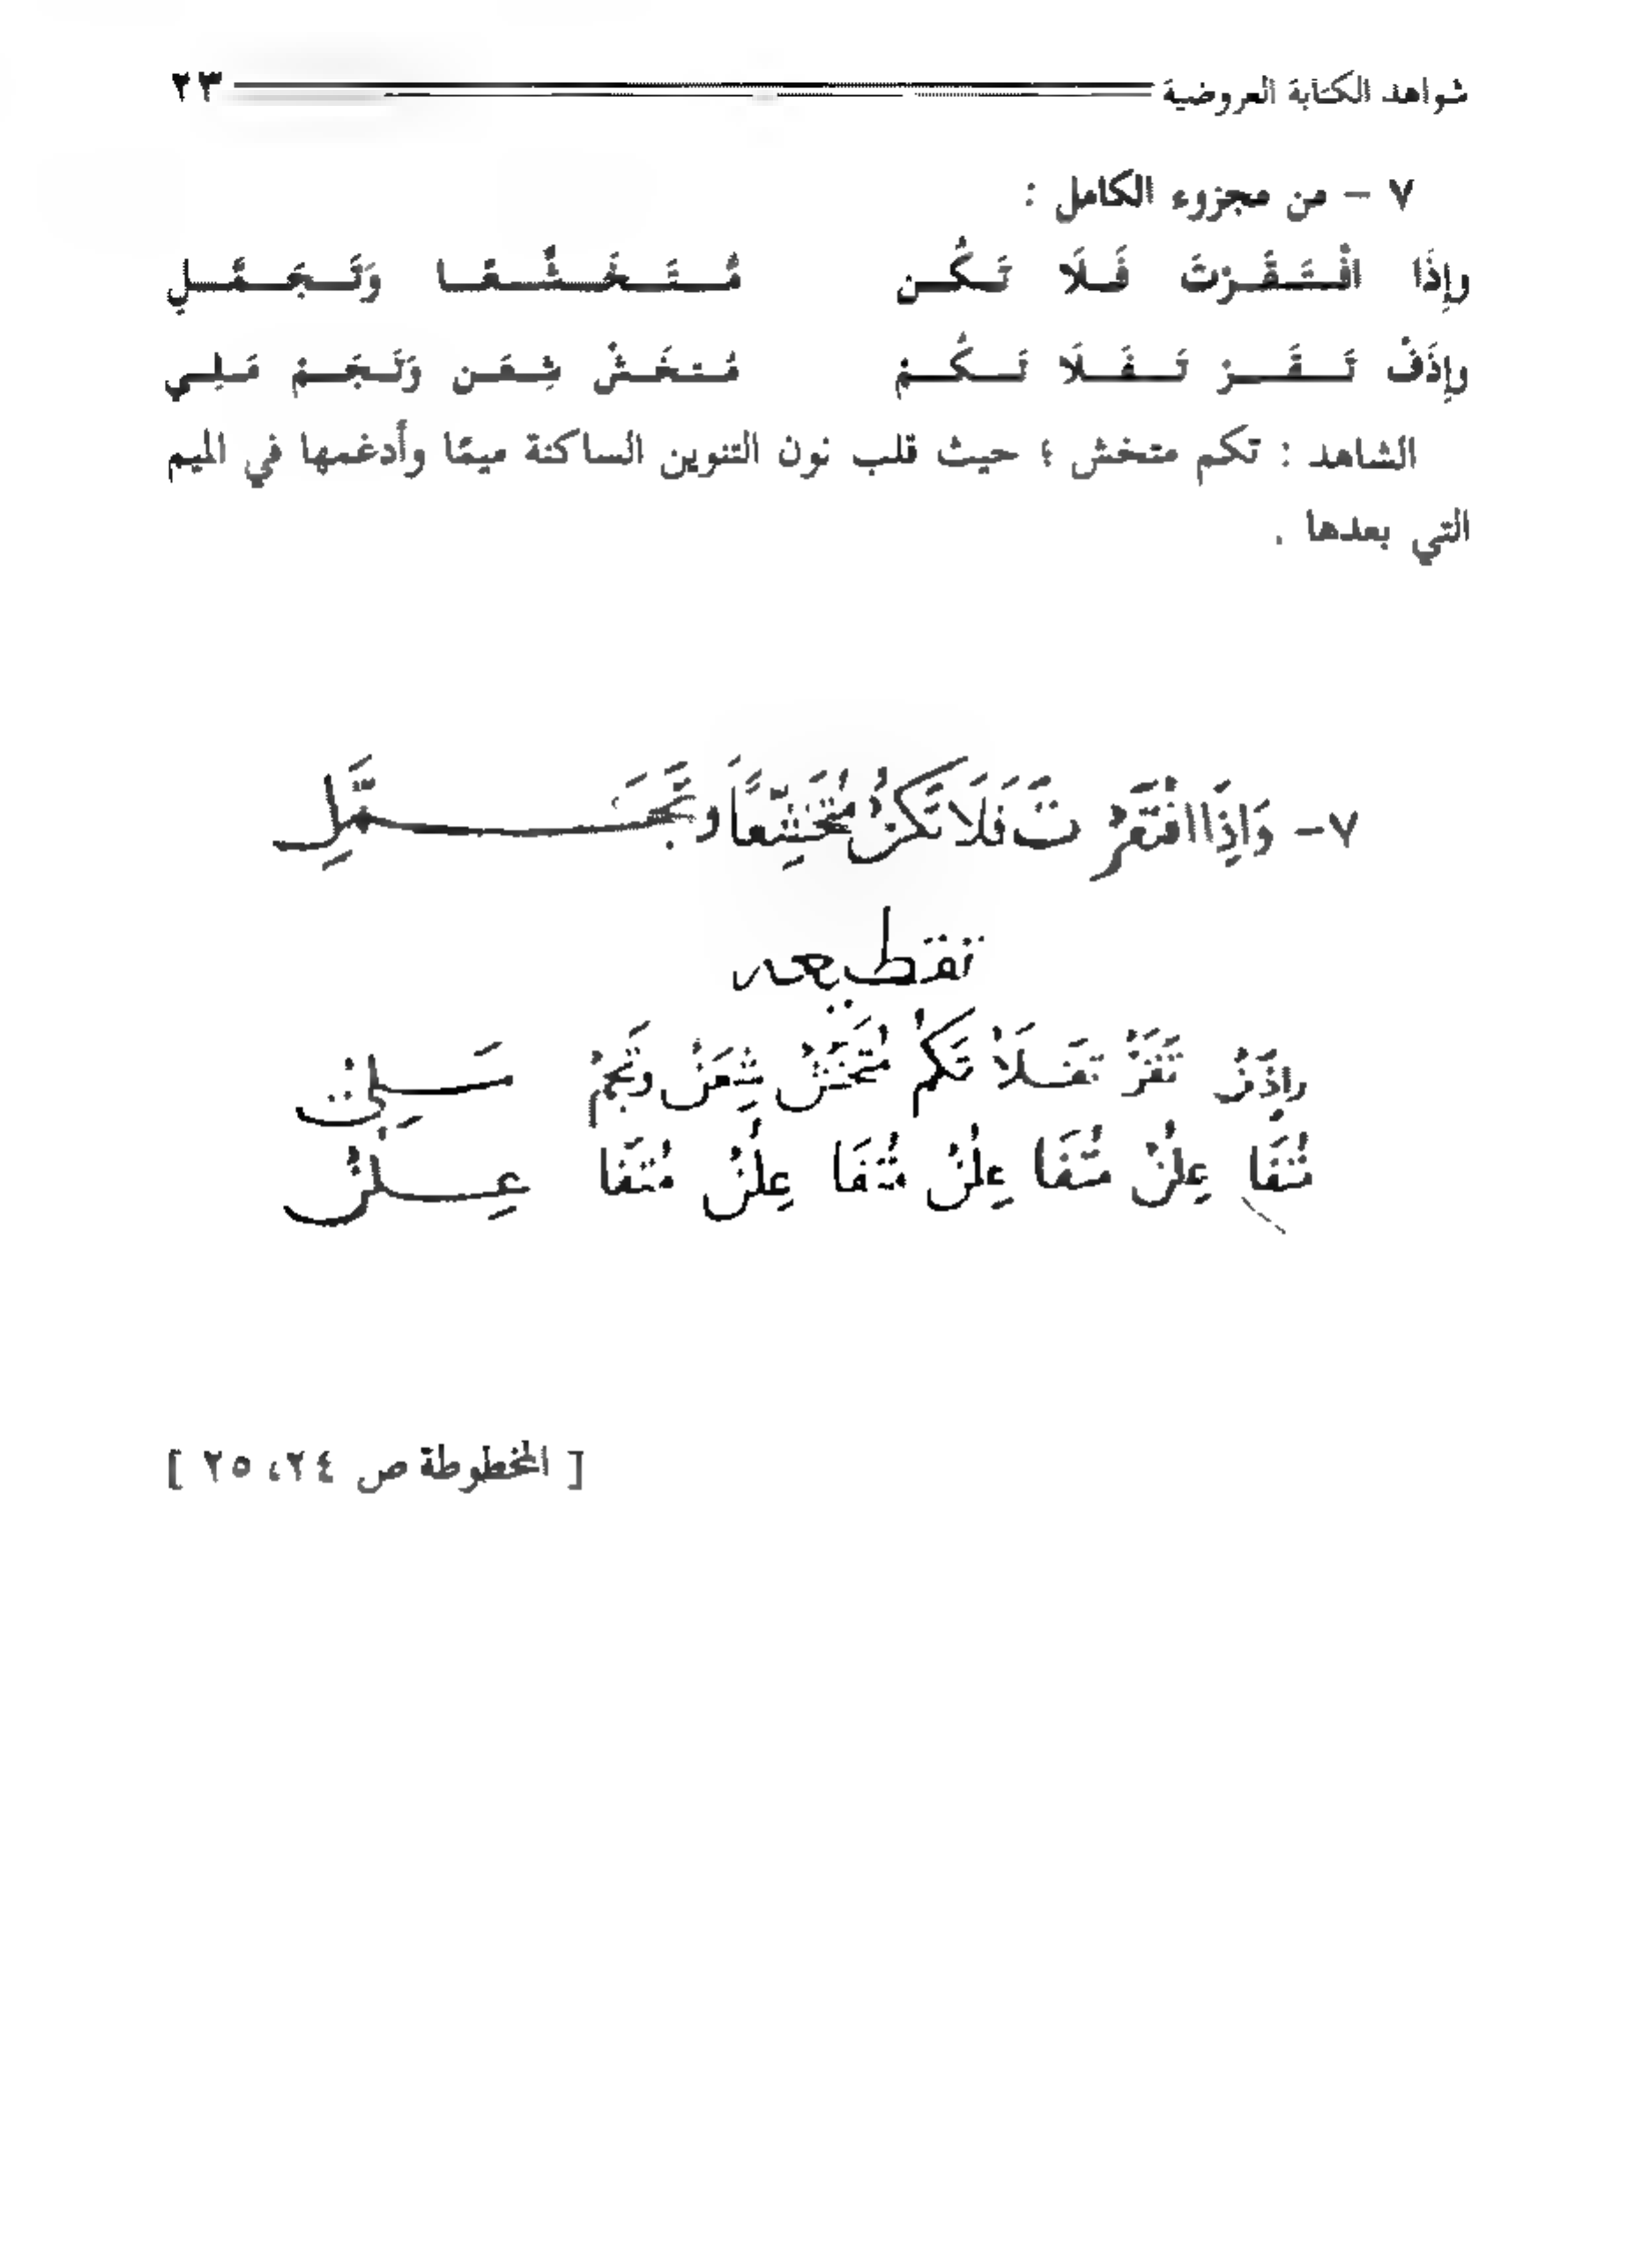 شواهد الكتابة العروضية ٢٣
٧ - من مجزوء الكامل :
وإِذَا افْـتَـقَـرْتَ فَـلَا تَـكُـن مُّـتَـخَـشِّـعًـا وَتَـجَـمَّـلِ
وإِذَفْ تَـقَـرْ تَـفَـلَا تَـكُـمْ مُـتـخَـشْ شِـعَـن وَتَـجَـمْ مَـلِـي
الشاهد : تكم متخش ؛ حيث قلب نون التنوين الساكنة ميمًا وأدغمها في الميم
التي بعدها .
٧- وَاِذَا افْتَقَرْ تَ فَلَا تَكُنْ مُتَخَشِّعاً وَتَجَـــمَّلِ
تقطيعه
وإِذَفْ تَقَرْ تَفَـلَا تَكُمْ مُتَخَشْ شِعَنْ وتَجَمْ مَـــلِيْ
مُتَفَا عِلُنْ مُتَفَا عِلُنْ مُتَفَا عِلُنْ مُتَفَا عِـــلُنْ
[ المخطوطة ص ٢٤، ٢٥ ]